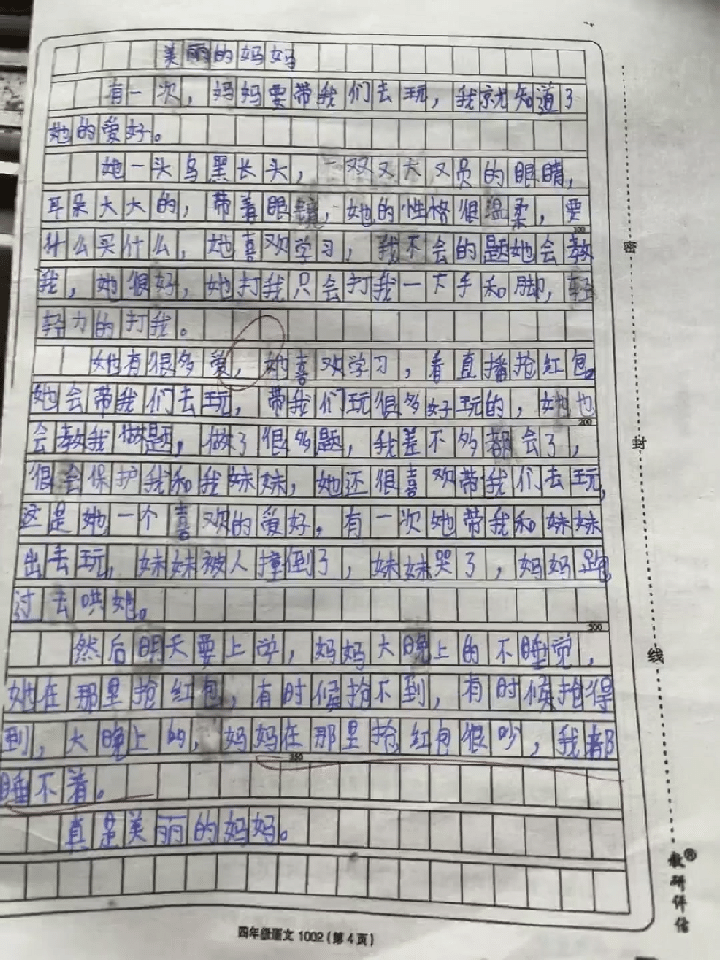 美丽的妈妈
有一次，妈妈要带我们去玩，我就知道了
她的爱好。
她一头乌黑长头，一双又大又员的眼睛，
耳朵大大的，带着眼镜，她的性格很温柔，要
什么买什么，她喜欢学习，我不会的题她会教
我，她很好，她打我只会打我一下手和脚，轻
轻力的打我。
她有很多爱，她喜欢学习，看直播抢红包，
她会带我们去玩，带我们玩很多好玩的，她也
会教我做题，做了很多题，我差不多都会了，
很会保护我和我妹妹，她还很喜欢带我们去玩，
这是她一个喜欢的爱好。有一次她带我和妹妹
出去玩，妹妹被人撞倒了，妹妹哭了，妈妈跑
过去哄她。
然后明天要上学，妈妈大晚上的不睡觉，
她在那里抢红包，有时候抢不到，有时候抢得
到，大晚上的，妈妈在那里抢红包很吵，我都
睡不着。
真是美丽的妈妈。
100
200
300
350
密
封
线
教研评估®
四年级语文 1002（第4页）